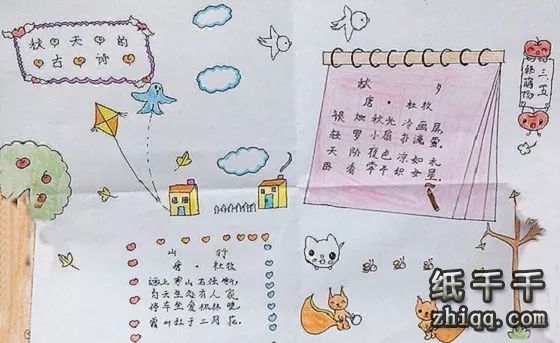 秋天中的
古诗
秋 夕
唐·杜牧
银烛秋光冷画屏,
轻罗小扇扑流萤.
天阶夜色凉如水,
卧看牵牛织女星.
山 行
唐·杜牧
远上寒山石径斜,
白云生处有人家.
停车坐爱枫林晚,
霜叶红于二月花.
纸千千
zhiqq.com